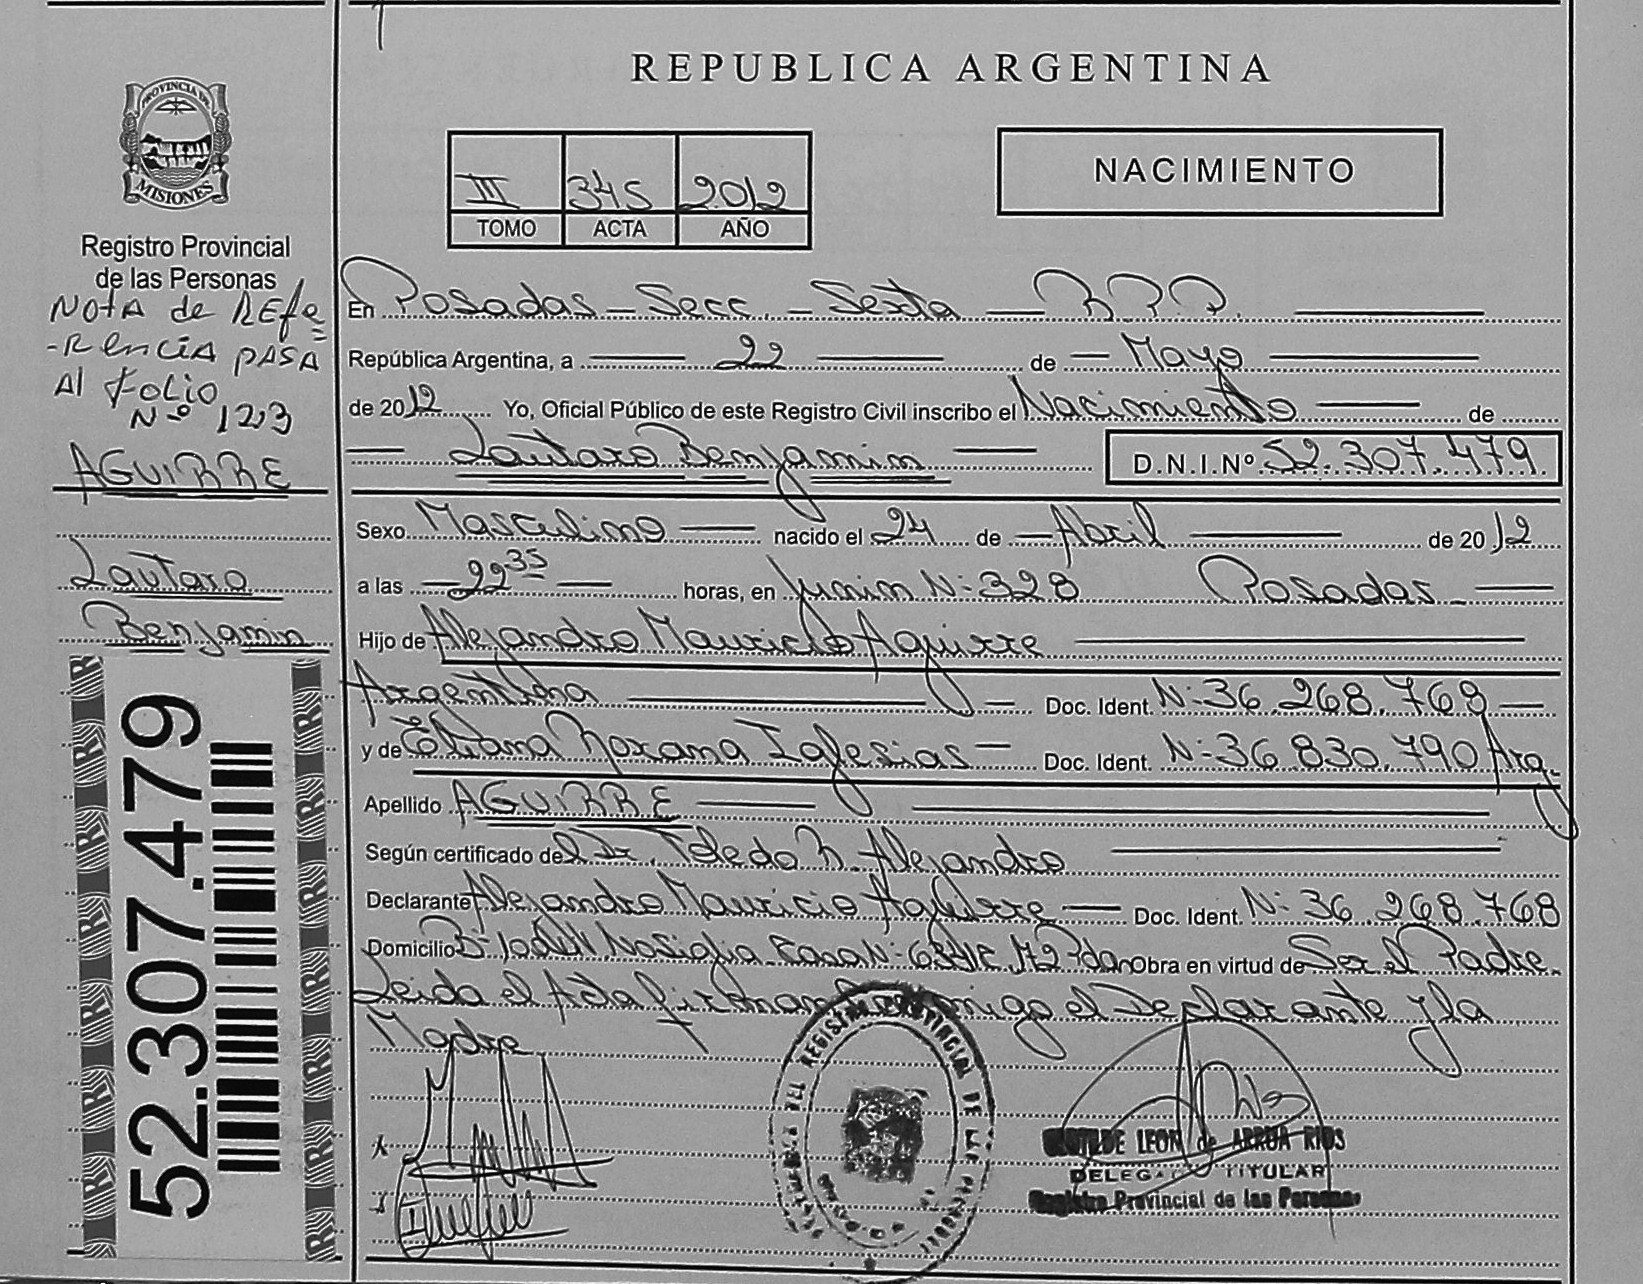 REPUBLICA ARGENTINA
PROVINCIA DE
MISIONES
Registro Provincial
de las Personas
NotA de REfe
-RenciA pASA
Al foLio
Nº 123
AGUIRRE
Lautaro
Benjamin
52.307.479
III 345 2012
TOMO ACTA AÑO
NACIMIENTO
En Posadas - Secc. - Sexta — R.P.P.
República Argentina, a — 22 — de — Mayo —
de 2012 Yo, Oficial Público de este Registro Civil inscribo el Nacimiento — de
— Lautaro Benjamin — D.N.I.Nº 52.307.479.
Sexo Masculino — nacido el 24 de — Abril — de 2012
a las — 22 35 — horas, en Junin N: 328 Posadas —
Hijo de Alejandro Mauricio Aguirre —
Argentina — Doc. Ident. N: 36.268.768 —
y de Eliana Roxana Iglesias — Doc. Ident. N: 36.830.790 Arg.
Apellido AGUIRRE —
Según certificado del Dr. Toledo R. Alejandro —
Declarante Alejandro Mauricio Aguirre — Doc. Ident. N: 36.268.768
Domicilio Bº Nosiglia Casa N: Obra en virtud de Ser el Padre.
Leida el Acta firman conmigo el Declarante y la
Madre
LEON de ARRUA RIOS
DELEGADO TITULAR
Registro Provincial de las Personas